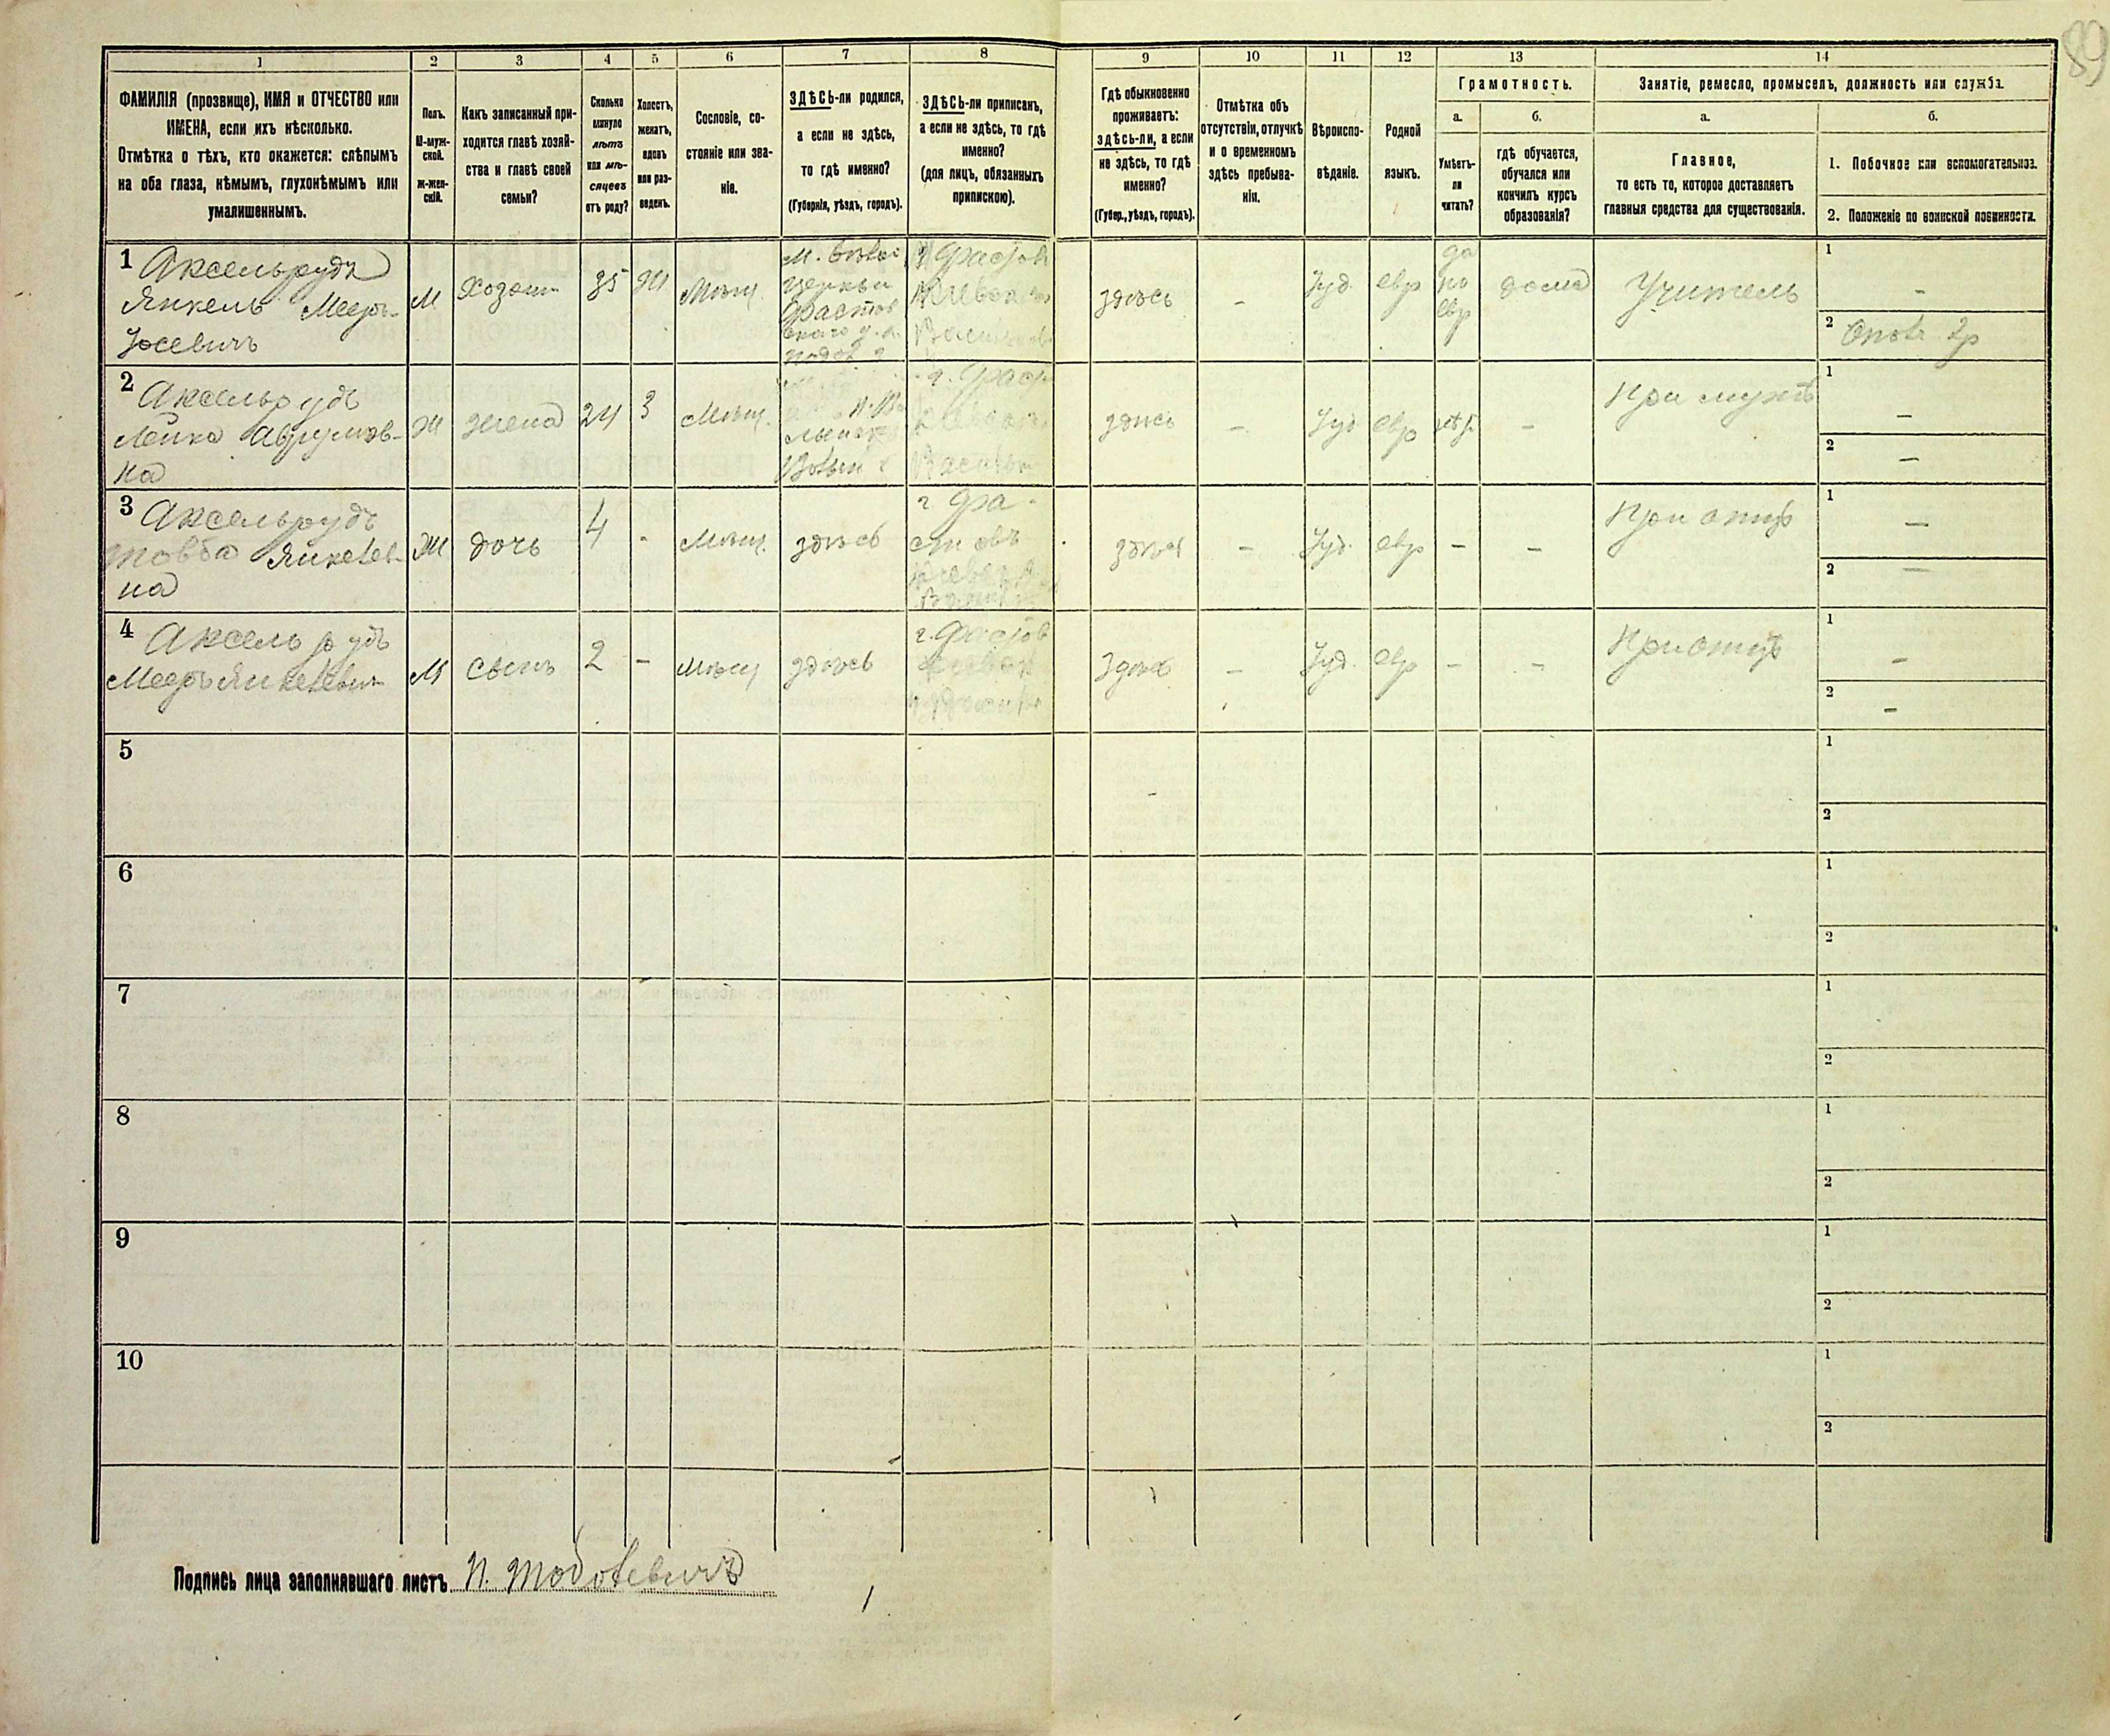 89
1
2
3
4
5
6
7
8
9
10
11
12
13
14
ФАМИЛІЯ (прозвище), ИМЯ и ОТЧЕСТВО или
ИМЕНА, если ихъ нѣсколько.
Отмѣтка о тѣхъ, кто окажется: слѣпымъ
на оба глаза, нѣмымъ, глухонѣмымъ или
умалишеннымъ.
Полъ.
М-муж-
ской.
ж-жен-
скій.
Какъ записанный при-
ходится главѣ хозяй-
ства и главѣ своей
семьи?
Сколько
минуло
лѣтъ
или мѣ-
сяцевъ
отъ роду?
Холостъ,
женатъ,
вдовъ
или раз-
веденъ.
Сословіе, со-
стояніе или зва-
ніе.
ЗДѢСЬ-ли родился,
а если не здѣсь,
то гдѣ именно?
(Губернія, уѣздъ, городъ).
ЗДѢСЬ-ли приписанъ,
а если не здѣсь, то гдѣ
именно?
(для лицъ, обязанныхъ
припискою).
Гдѣ обыкновенно
проживаетъ:
здѣсь-ли, а если
не здѣсь, то гдѣ
именно?
(Губер., уѣздъ, городъ).
Отмѣтка объ
отсутствіи, отлучкѣ
и о временномъ
здѣсь пребыва-
ніи.
Вѣроиспо-
вѣданіе.
Родной
языкъ.
Грамотность.
а.
Умѣетъ-
ли
читать?
б.
гдѣ обучается,
обучался или
кончилъ курсъ
образованія?
Занятіе, ремесло, промыселъ, должность или служба.
а.
Главное,
то есть то, которое доставляетъ
главныя средства для существованія.
б.
1. Побочное или вспомогательное.
2. Положеніе по воинской повинности.
1 Аксельрудъ
Янкель Мееръ-
Іосевичъ
М
Хозяин
35
Ж
Мѣщ.
церкви
здѣсь
-
Іуд.
евр
да
по
евр
дома
Учитель
1
-
2
2 Аксельрудъ
Лейка Аврумов-
на
Ж
жена
24
З
Мѣщ.
здѣсь
-
Іуд
евр
-
При мужѣ
1
-
2
-
3 Аксельрудъ
Товба Янкелев-
на
Ж
дочь
4
-
Мѣщ.
здѣсь
г Фа-
стовъ
здѣсь
-
Іуд.
евр
-
-
При отцѣ
1
-
2
-
4 Аксельрудъ
Мееръ Янкелевич
М
сынъ
2
-
Мѣщ
здѣсь
г. Фастов
Здѣсь
-
Іуд.
евр
-
-
При отцѣ
1
-
2
-
5
1
2
6
1
2
7
1
2
8
1
2
9
1
2
10
1
2
Подпись лица заполнявшаго листъ